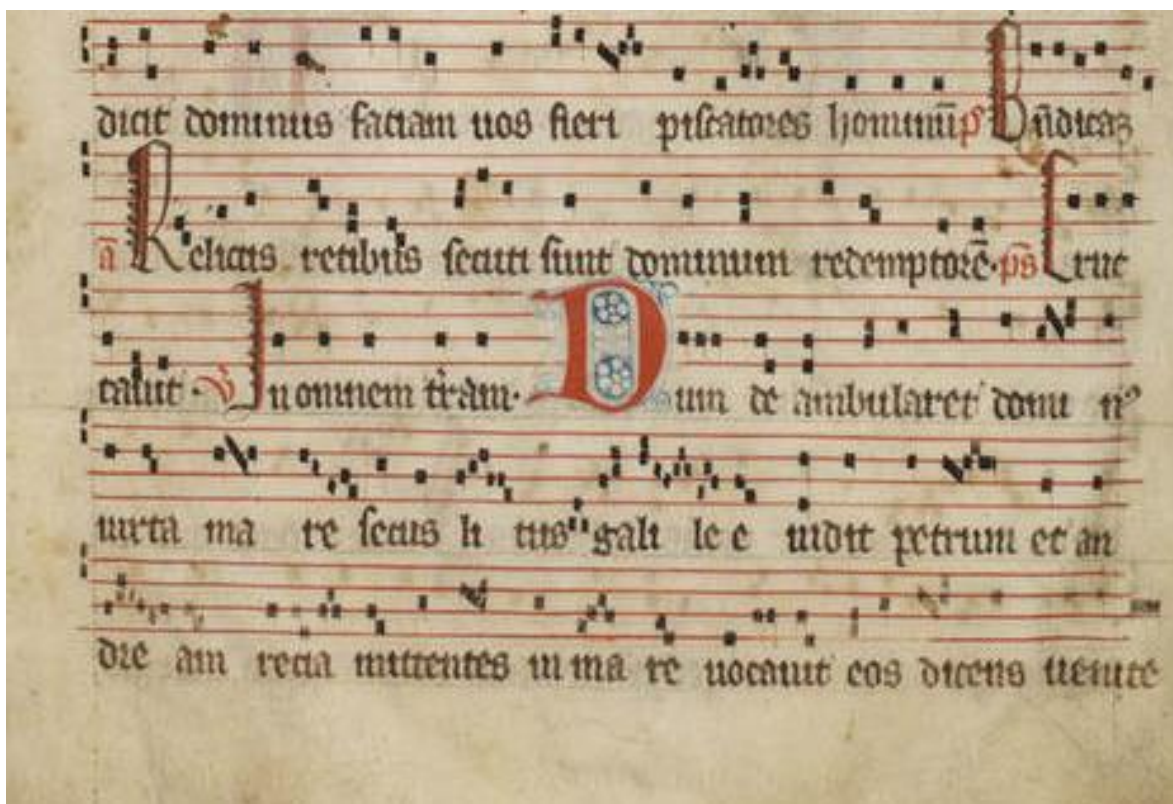 dicit dominus faciam uos fieri piscatores hominū p̄s Bn̄dicaz
ā Relictis retibus secuti sunt dominum redemptorē· ps̄ Eruc
tauit · V̄ In omnem t̄ram· Dum de ambularet domi nꝰ
iuxta ma re secus li tus gali le e uidit petrum et an
dre am recia mittentes in ma re uocauit eos dicens uenite